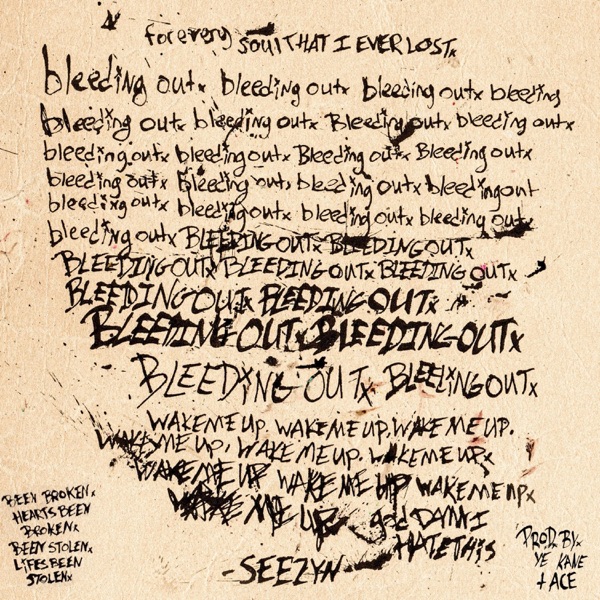 for every soul THAT I EVER LOSTx
bleeding outx bleeding outx bleeding outx bleeding
bleeding outx bleeding outx Bleeding outx bleeding outx
bleeding outx bleeding outx Bleeding outx Bleeding outx
bleeding outx Bleeding outx bleeding outx bleeding out
bleeding outx bleeding outx bleeding outx bleeding outx
bleeding outx BLEEDING OUTx BLEEDING OUTx
BLEEDING OUTx BLEEDING OUTx BLEEDING OUTx
BLEEDING OUTx BLEEDING OUTx
BLEEDING OUTx BLEEDING OUTx
BLEEDING OUTx BLEEDING OUTx
WAKE ME UP. WAKE ME UP. WAKE ME UP.
WAKE ME UP, WAKE ME UP. WAKE ME UPx
WAKE ME UP WAKE ME UP WAKE ME UPx
WAKE ME UP god DAMN I
HATE THiS
-SEEZYN
BEEN BROKENx
HEARTS BEEN
BROKENx
BEEN STOLENx
LiFES BEEN
STOLENx
PROD. BYx
YE KANE
+ ACE